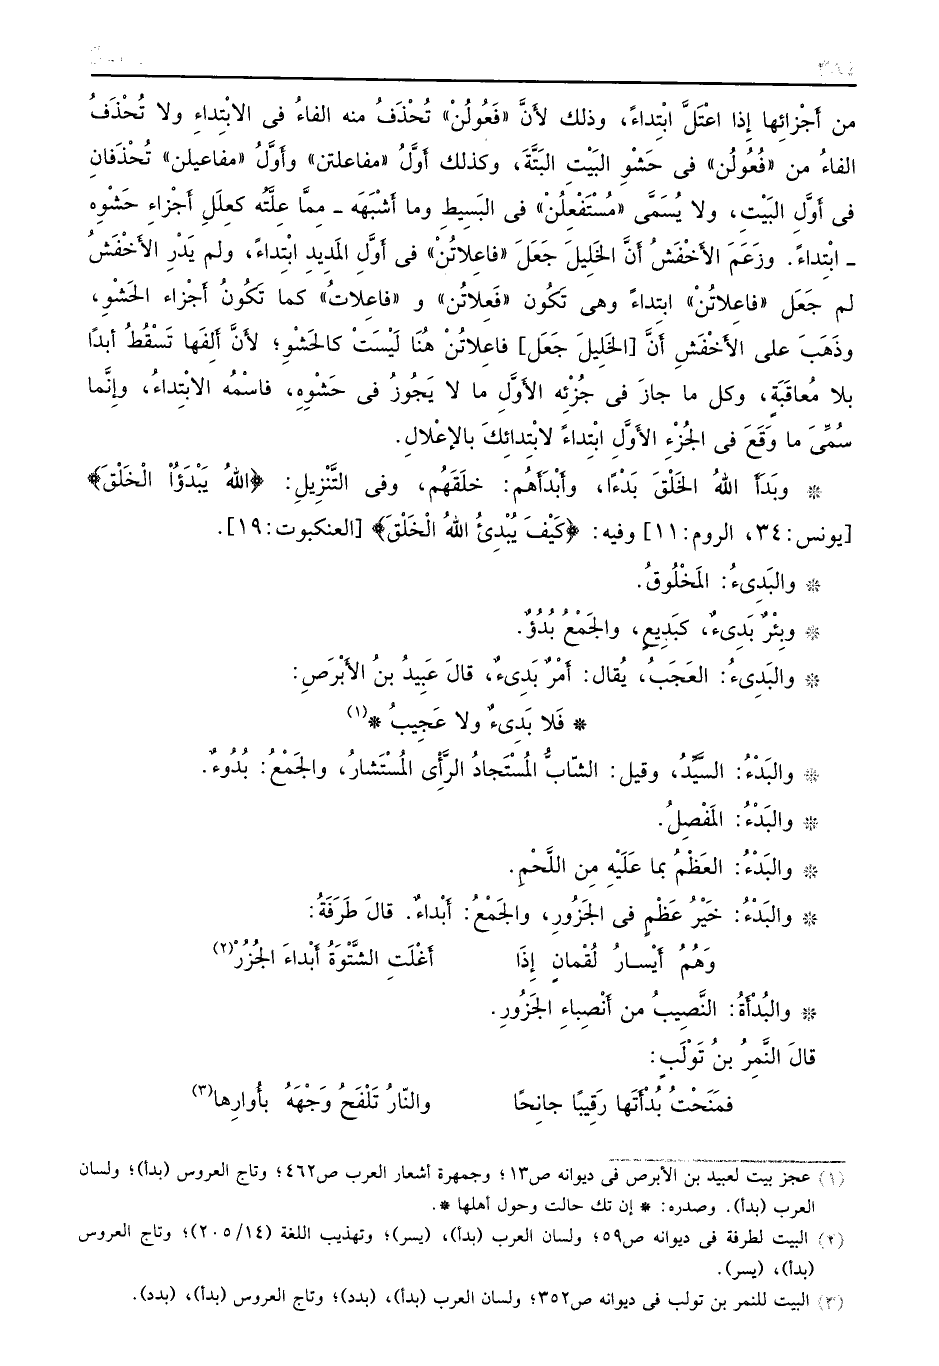 من أَجْزائها إذا اعْتَلَّ ابْتداءً، وذلك لأنَّ «فَعُولُنْ» تُحْذَفُ منه الفاءُ فى الابْتداءِ ولا تُحْذَفُ
الفاءُ من «فُعُولُن» فى حَشْوِ البَيْتِ البَتَّةَ، وكذلك أوَّلُ «مفاعلتن» وأوَّلُ «مفاعيلن» تُحْذَفان
فى أوَّلِ البَيْتِ، ولا يُسَمَّى «مُسْتَفْعلُنْ» فى البَسيطِ وما أشْبَهَه ـ ممَّا علَّتُه كعِلَلِ أجْزاءِ حَشْوِه
ـ ابْتداءً. وزَعَمَ الأخْفَشُ أنَّ الخليلَ جَعَلَ «فاعلاتُنْ» فى أوَّلِ المَديدِ ابتداءً، ولم يَدْرِ الأخْفَشُ
لم جَعَلَ «فاعلاتُنْ» ابتداءً وهى تَكون «فَعلاتُن» و «فاعلاتُ» كما تَكُونُ أجزاء الحَشْوِ،
وذَهَبَ على الأخْفَشِ أنَّ [الخليلَ جَعَلَ] فاعلاتُنْ هُنَا لَيْسَتْ كالحَشْوِ؛ لأنَّ ألفَها تَسْقُطُ أبدًا
بلا مُعاقَبَةٍ، وكل ما جازَ فى جُزْئه الأوَّلِ ما لا يَجُوزُ فى حَشْوِه، فاسْمُه الابْتداءُ، وإنَّما
سُمِّىَ ما وَقَعَ فى الجُزْءِ الأوَّلِ ابْتداءً لابْتدائكَ بالإعْلالِ.
* وبَدَأَ اللهُ الخَلْقَ بَدْءًا، وأَبْدَأَهُم: خلَقَهُم، وفى التَّنْزِيلِ: ﴿اللهُ يَبْدَؤُاْ الْخَلْقَ﴾
[يونس:٣٤، الروم:١١] وفيه: ﴿كَيْفَ يُبْدِئُ اللهُ الْخَلْقَ﴾ [العنكبوت:١٩].
* والبَدِىءُ: المَخْلُوقُ.
* وبِئْرٌ بَدِىءٌ، كبَدِيعٍ، والجَمْعُ بُدُؤٌ.
* والبَدِىءُ: العَجَبُ، يُقال: أمْرٌ بَدِىءٌ، قالَ عَبِيدُ بنُ الأَبْرَصِ:
* فَلا بَدِىءٌ ولا عَجِيبُ *(١)
* والبَدْءُ: السيِّدُ، وقيل: الشّابُّ المُسْتَجادُ الرَّأْىِ المُسْتَشارُ، والجَمْعُ: بُدُوءٌ.
* والبَدْءُ: المَفْصِلُ.
* والبَدْءُ: العَظْمُ بما عَلَيْهِ مِن اللَّحْمِ.
* والبَدْءُ: خَيْرُ عَظْمٍ فى الجَزُورِ، والجَمْعُ: أبْداءٌ. قالَ طَرَفَةُ:
وَهُمُ أَيْسارُ لُقْمانٍ إذَا أَغْلَتِ الشَّتْوَةُ أَبْداءَ الجُزُرْ(٢)
* والبُدْأَةُ: النَّصِيبُ من أنْصِباءِ الجَزُورِ.
قالَ النَّمِرُ بنُ تَوْلَبٍ:
فمَنَحْتُ بُدْأَتَها رَقِيبًا جانِحًا والنّارُ تَلْفَحُ وَجْهَهُ بأُوارِها(٣)
(١) عجز بيت لعبيد بن الأبرص فى ديوانه ص١٣؛ وجمهرة أشعار العرب ص٤٦٢؛ وتاج العروس (بدأ)؛ ولسان
العرب (بدأ). وصدره: * إن تك حالت وحول أهلها *.
(٢) البيت لطرفة فى ديوانه ص٥٩؛ ولسان العرب (بدأ)، (يسر)؛ وتهذيب اللغة (١٤/٢٠٥)؛ وتاج العروس
(بدأ)، (يسر).
(٣) البيت للنمر بن تولب فى ديوانه ص٣٥٢؛ ولسان العرب (بدأ)، (بدد)؛ وتاج العروس (بدأ)، (بدد).